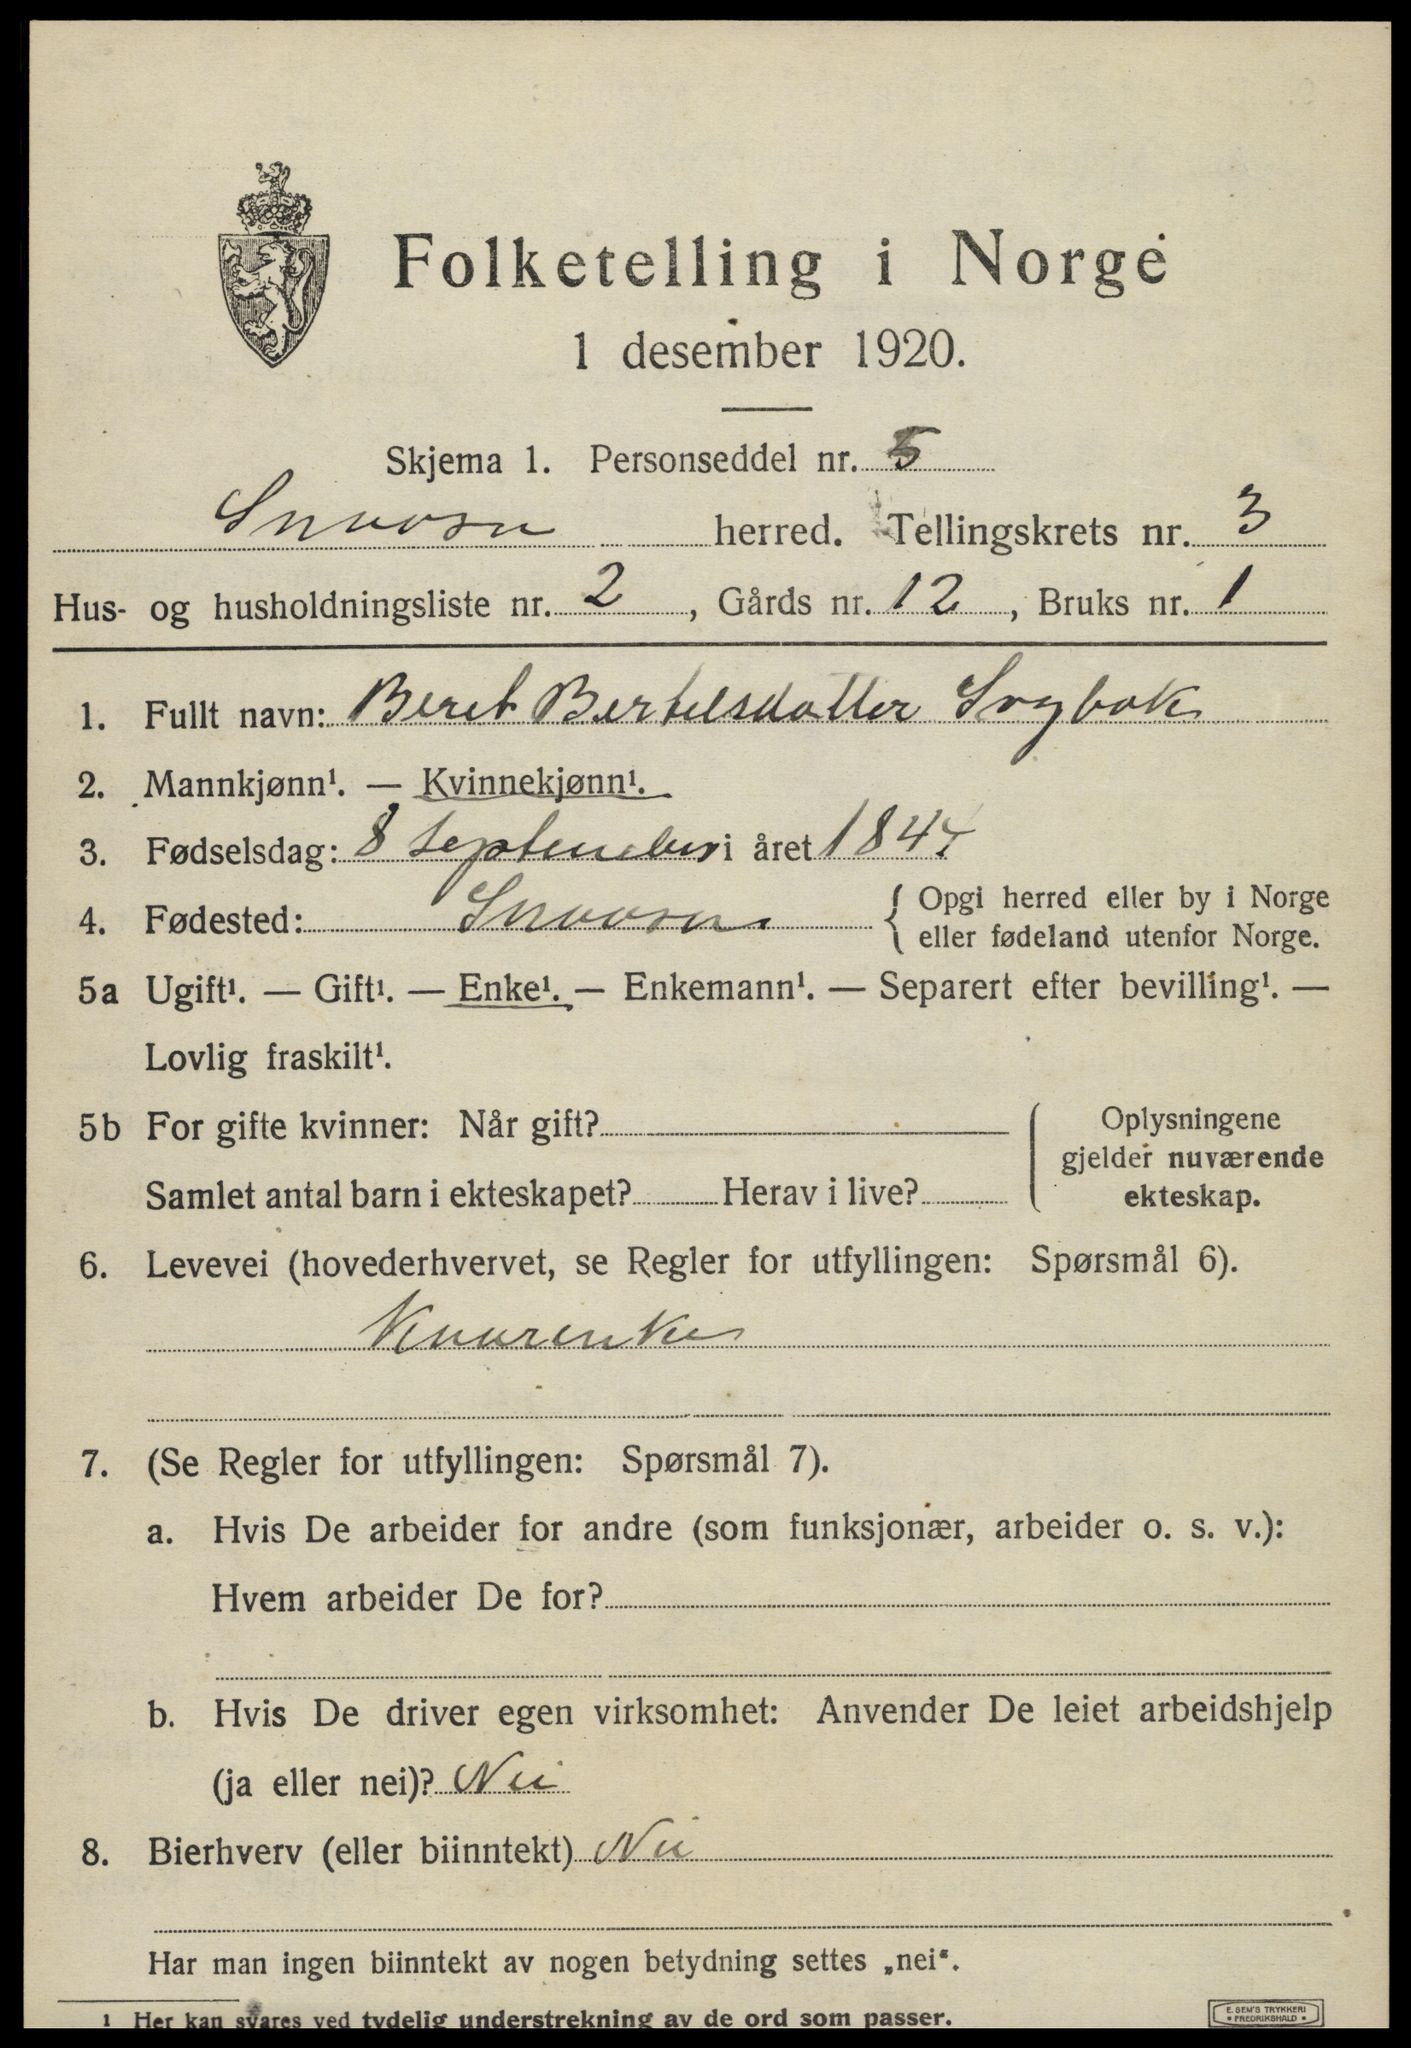 Folketelling i Norge
1 desember 1920.
Skjema 1. Personseddel nr. 5
Snaasa herred. Tellingskrets nr. 3
Hus- og husholdningsliste nr. 2, Gårds nr. 12, Bruks nr. 1
1. Fullt navn: Beret Bertelsdatter
2. Mannkjønn¹. — Kvinnekjønn¹.
3. Fødselsdag: 8 September i året 1844
4. Fødested: Snaasa { Opgi herred eller by i Norge
eller fødeland utenfor Norge.
5a Ugift¹. — Gift¹. — Enke¹. — Enkemann¹. — Separert efter bevilling¹. —
Lovlig fraskilt¹.
5b For gifte kvinner: Når gift? Oplysningene
gjelder nuværende
Samlet antal barn i ekteskapet? Herav i live? ekteskap.
6. Levevei (hovederhvervet, se Regler for utfyllingen: Spørsmål 6).
Kaarenke
7. (Se Regler for utfyllingen: Spørsmål 7).
a. Hvis De arbeider for andre (som funksjonær, arbeider o. s. v.):
Hvem arbeider De for?
b. Hvis De driver egen virksomhet: Anvender De leiet arbeidshjelp
(ja eller nei)? Nei
8. Bierhverv (eller biinntekt) Nei
Har man ingen biinntekt av nogen betydning settes „nei“.
¹ Her kan svares ved tydelig understrekning av de ord som passer.
E. SEM'S TRYKKERI
• FREDRIKSHALD •